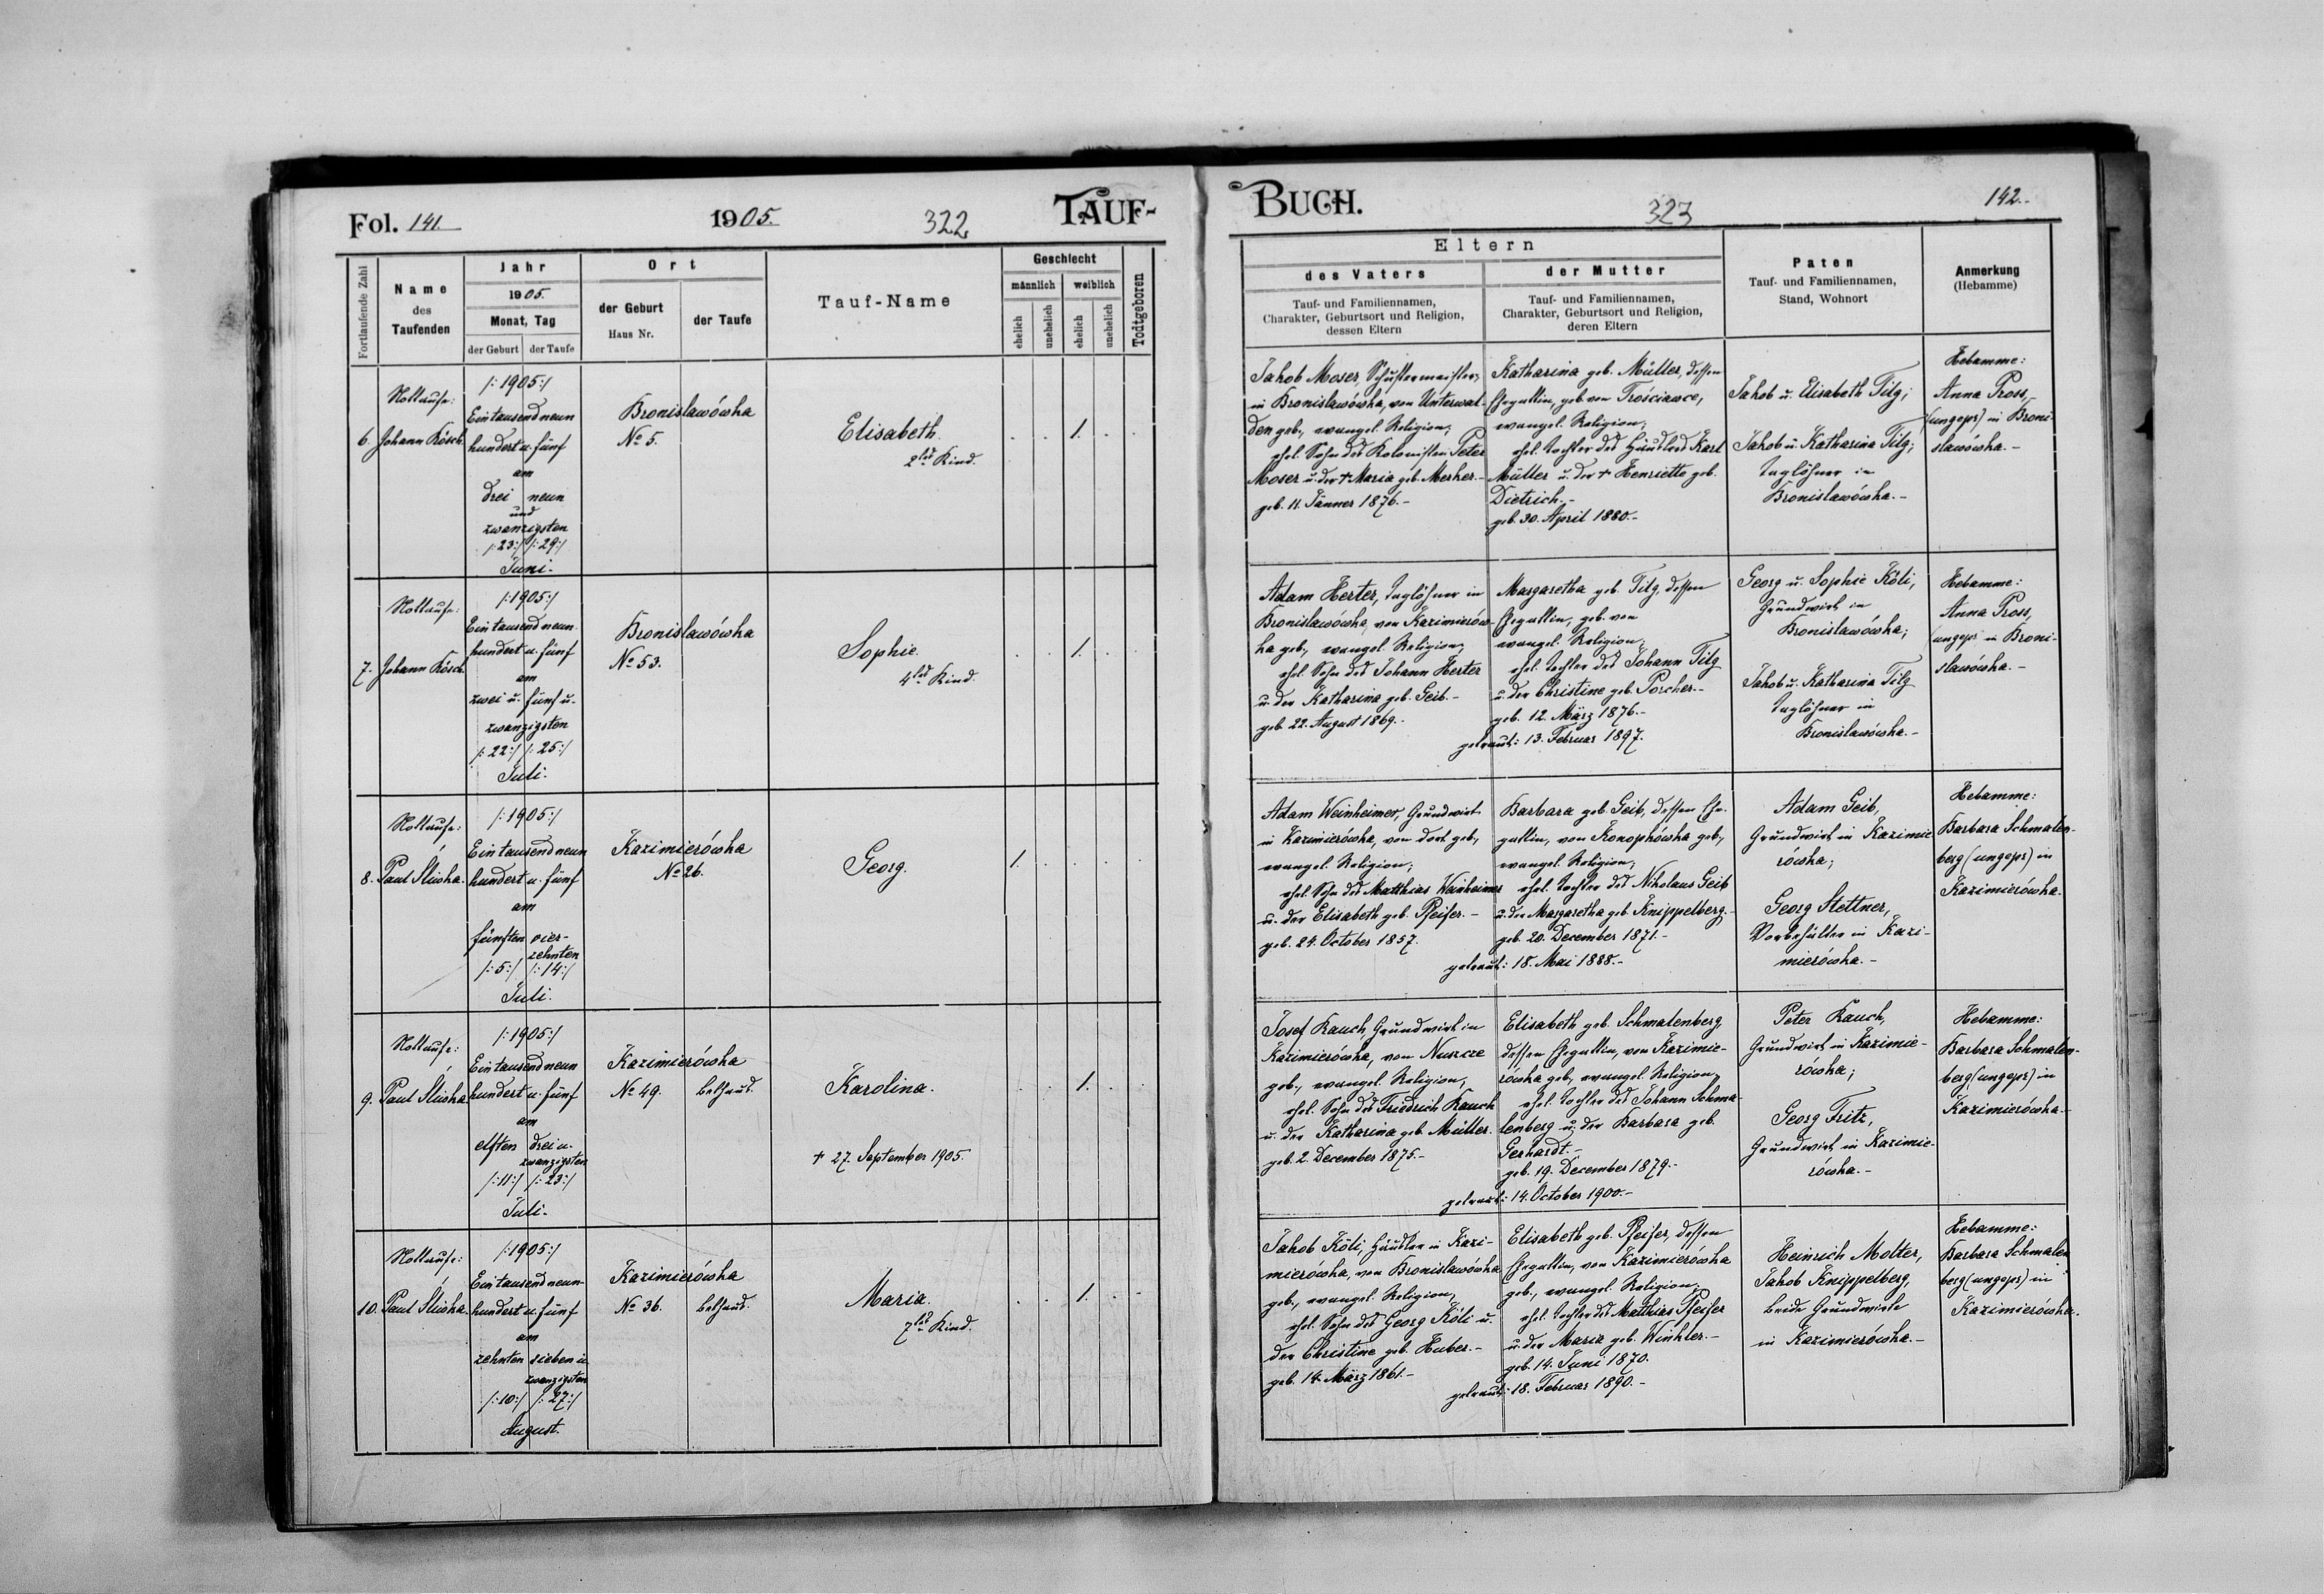 Fol. 141.
1905.
322
TAUF-
Fortlaufende Zahl
Name
des
Taufenden
Jahr
1905.
Monat, Tag
der Geburt
der Taufe
Ort
der Geburt
Haus Nr.
der Taufe
Tauf-Name
Geschlecht
männlich
weiblich
ehelich
unehelich
ehelich
unehelich
Todtgeboren
6.
Nottaufe:
Johann Kösch.
/:1905:/
Ein tausend neun
hundert u. fünf
am
drei neun
und
zwanzigsten
/:23:/ /:29:/
Juni.
Bronislawówka
No 5.
Elisabeth.
2tes Kind.
1.
7.
Nottaufe:
Johann Kösch.
/:1905:/
Ein tausend neun
hundert u. fünf
am
zwei u. fünf u.
zwanzigsten
/:22:/ /:25:/
Juli.
Bronislawówka
No 53.
Sophie.
4tes Kind.
1.
8.
Nottaufe:
Paul Sliwka.
/:1905:/
Ein tausend neun
hundert u. fünf
am
fünften vier-
zehnten
/:5:/ /:14:/
Juli.
Kazimierówka
No 26.
Georg.
1.
9.
Nottaufe:
Paul Sliwka.
/:1905:/
Ein tausend neun
hundert u. fünf
am
elften drei u.
zwanzigsten
/:11:/ /:23:/
Juli.
Kazimierówka
No 49. Bethaus.
Karolina.
† 27. September 1905.
1.
10.
Nottaufe:
Paul Sliwka.
/:1905:/
Ein tausend neun-
hundert u. fünf
am
zehnten sieben u.
zwanzigsten
/:10:/ /:27:/
August.
Kazimierówka
No 36. Bethaus.
Maria.
7tes Kind.
1.
BUCH.
323
142.
Eltern
des Vaters
Tauf- und Familiennamen,
Charakter, Geburtsort und Religion,
dessen Eltern
der Mutter
Tauf- und Familiennamen,
Charakter, Geburtsort und Religion,
deren Eltern
Paten
Tauf- und Familiennamen,
Stand, Wohnort
Anmerkung
(Hebamme)
Jakob Moser, Schustermeister,
in Bronislawówka, von Unterwal-
den geb., evangel. Religion;
ehel. Sohn des Kolonisten Peter
Moser u. der † Maria geb. Merker.-
geb. 11. Jänner 1876.-
Katharina geb. Müller, dessen
Ehegattin, geb. von Trościawce,
evangel. Religion;
ehel. Tochter des Häuslers Karl
Müller u. der † Henriette geb.
Dietrich.-
geb. 30. April 1880.-
Jakob u. Elisabeth Tilg;
Jakob u. Katharina Tilg;
Taglöhner in
Bronislawówka.-
Hebamme:
Anna Pross,
(ungepr) in Broni-
slawówka.-
Adam Herter, Taglöhner in
Bronislawówka, von Kazimierów-
ka geb., evangel. Religion;
ehel. Sohn des Johann Herter
u. der Katharina geb. Geib.-
geb. 22. August 1869.-
Margaretha geb. Tilg, dessen
Ehegattin, geb. von
evangel. Religion;
ehel. Tochter des Johann Tilg
u. der Christine geb. Porcher.-
geb. 12. März 1876.-
getraut: 13. Februar 1897.
Georg u. Sophie Köli,
Grundwirt in
Bronislawówka;
Jakob u. Katharina Tilg
Taglöhner in
Bronislawówka.-
Hebamme:
Anna Pross,
(ungepr in Broni-
slawówka.-
Adam Weinheimer, Grundwirt
in Kazimierówka, von dort geb.,
evangel. Religion;
ehel. Sohn des Matthias Weinheimer
u. der Elisabeth geb. Pfeifer.-
geb. 24. October 1857.
Barbara geb. Geib, dessen Ehe-
gattin, von Konopkówka geb.,
evangel. Religion;
ehel. Tochter des Nikolaus Geib
u. der Margaretha geb. Knippelberg.
geb. 20. December 1871.-
getraut: 18. Mai 1888.-
Adam Geib,
Grundwirt in Kazimie
rówka;
Georg Stettner,
Vorbehälter in Kazi-
mierówka.-
Hebamme:
Barbara Schmalen-
berg (ungepr) in
Kazimierówka.
Josef Rauch, Grundwirt in
Kazimierówka, von Nuszcze
geb., evangel. Religion,
ehel. Sohn des Friedrich Rauch
u. der Katharina geb. Müller.
geb. 2. December 1875.-
Elisabeth geb. Schmalenberg,
dessen Ehegattin, von Kazimie-
rówka geb., evangel. Religion,
ehel. Tochter des Johann Schma-
lenberg u. der Barbara geb.
Gerhardt.-
geb. 19. December 1879.-
getraut: 14. October 1900.-
Peter Rauch,
Grundwirt in Kazimie-
rówka;
Georg Fritz,
Grundwirt in Kazimie-
rówka.-
Hebamme:
Barbara Schmalen-
berg (ungepr) in
Kazimierówka.-
Jakob Köli, Häusler in Kazi-
mierówka, von Bronislawówka
geb., evangel. Religion,
ehel. Sohn des Georg Köli u.
der Christine geb. Huber.-
geb. 14. März 1861.-
Elisabeth geb. Pfeifer, dessen
Ehegattin, von Kazimierówka
geb., evangel. Religion;
ehel. Tochter des Matthias Pfeifer
u. der Maria geb. Winkler.-
geb. 14. Juni 1870.
getraut: 18. Februar 1890.-
Heinrich Molter,
Jakob Knippelberg,
beide Grundwirte
in Kazimierówka.-
Hebamme:
Barbara Schmalen
berg (ungepr) in
Kazimierówka.